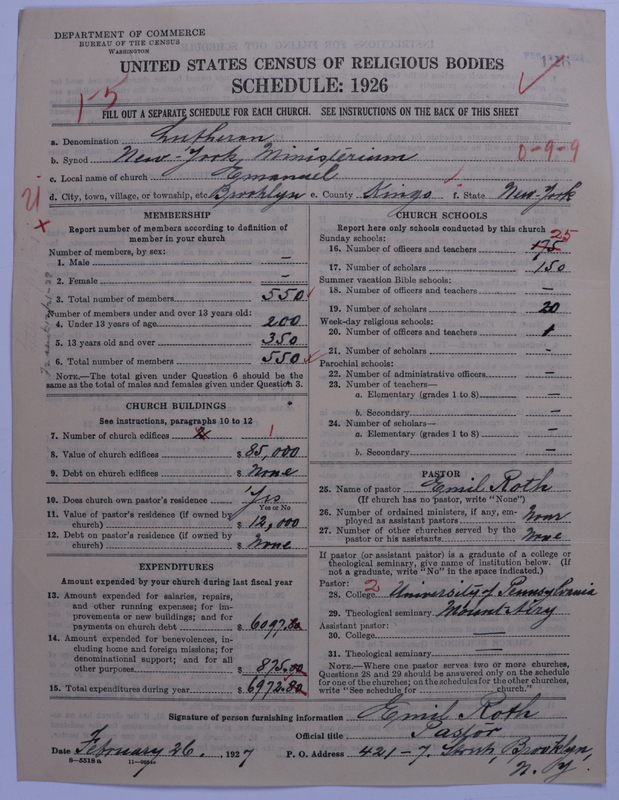 DEPARTMENT OF COMMERCE
BUREAU OF THE CENSUS
WASHINGTON
UNITED STATES CENSUS OF RELIGIOUS BODIES
SCHEDULE: 1926
1-5
FILL OUT A SEPARATE SCHEDULE FOR EACH CHURCH. SEE INSTRUCTIONS ON THE BACK OF THIS SHEET
a. Denomination Lutheran
b. Synod New-York Ministerium 0-9-9
c. Local name of church Emanuel
d. City, town, village, or township, etc. Brooklyn e. County Kings f. State New-York
MEMBERSHIP
Report number of members according to definition of member in your church
Number of members, by sex:
1. Male —
2. Female —
3. Total number of members 550
Number of members under and over 13 years old:
4. Under 13 years of age 200
5. 13 years old and over 350
6. Total number of members 550
NOTE.—The total given under Question 6 should be the
same as the total of males and females given under Question 3.
CHURCH BUILDINGS
See instructions, paragraphs 10 to 12
7. Number of church edifices 1
8. Value of church edifices $ 85,000
9. Debt on church edifices $ None
10. Does church own pastor's residence Yes
Yes or No
11. Value of pastor's residence (if owned by
church) $ 12,000
12. Debt on pastor's residence (if owned by
church) $ None
EXPENDITURES
Amount expended by your church during last fiscal year
13. Amount expended for salaries, repairs,
and other running expenses; for im-
provements or new buildings; and for
payments on church debt $ 6097.80
14. Amount expended for benevolences, in-
cluding home and foreign missions; for
denominational support; and for all
other purposes $ 875.00
15. Total expenditures during year $ 6972.80
CHURCH SCHOOLS
Report here only schools conducted by this church
Sunday schools: 25
16. Number of officers and teachers 175
17. Number of scholars 150
Summer vacation Bible schools:
18. Number of officers and teachers —
19. Number of scholars 20
Week-day religious schools:
20. Number of officers and teachers 1
21. Number of scholars —
Parochial schools:
22. Number of administrative officers —
23. Number of teachers—
a. Elementary (grades 1 to 8) —
b. Secondary —
24. Number of scholars—
a. Elementary (grades 1 to 8) —
b. Secondary —
PASTOR
25. Name of pastor Emil Roth
(If church has no pastor, write "None")
26. Number of ordained ministers, if any, em-
ployed as assistant pastors None
27. Number of other churches served by the
pastor or his assistants None
If pastor (or assistant pastor) is a graduate of a college or
theological seminary, give name of institution below. (If
not a graduate, write "No" in the space indicated.)
Pastor: 2
28. College University of Pennsylvania
29. Theological seminary Mount Airy
Assistant pastor:
30. College —
31. Theological seminary —
NOTE.—Where one pastor serves two or more churches,
Questions 28 and 29 should be answered only on the schedule
for one of the churches; on the schedules for the other churches,
write "See schedule for church."
Signature of person furnishing information Emil Roth
Official title Pastor
Date February 26., 1927 P. O. Address 421-7. Street, Brooklyn,
8-5518a N. Y.